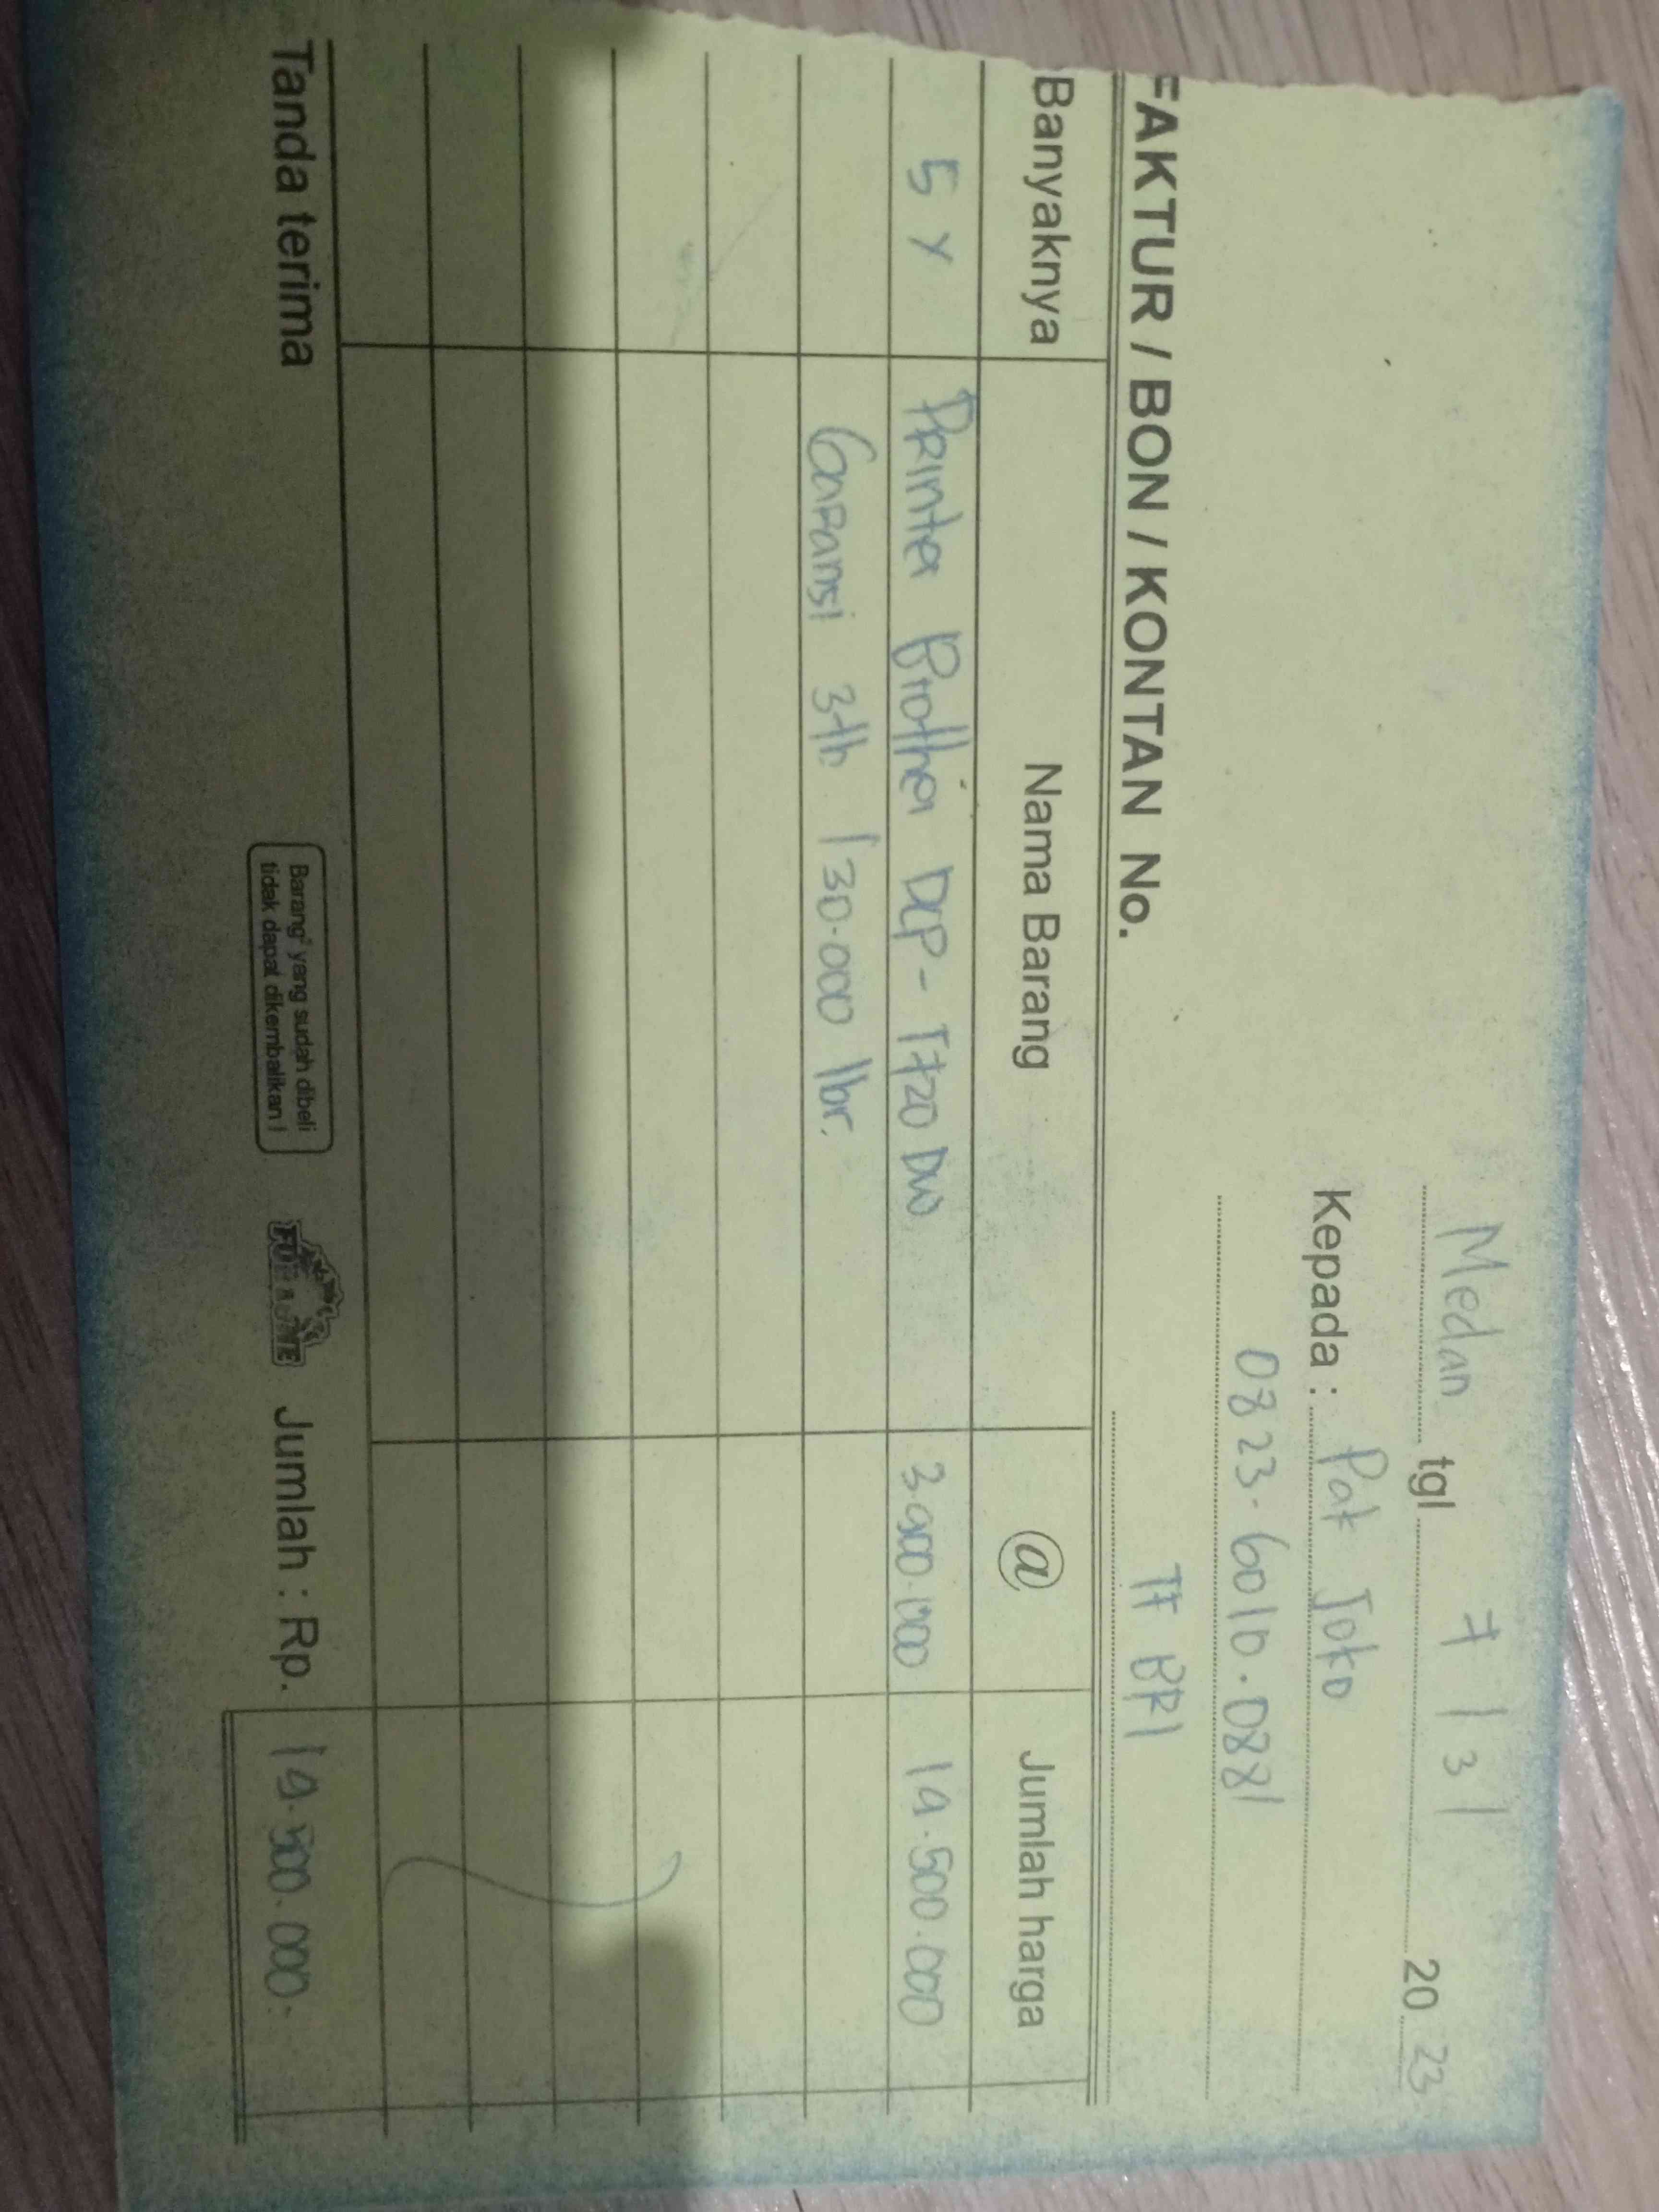 Medan tgl 7/3/ 2023
Kepada : Pak Joko
0823-6010.0881
FAKTUR / BON / KONTAN No. Tf BRI
Banyaknya Nama Barang @ Jumlah harga
5 x Printer Brother DCP-T720 DW 3.900.000 19.500.000
Garansi 3th / 30.000 lbr.
Tanda terima
Barang² yang sudah dibeli
tidak dapat dikembalikan !
Jumlah : Rp. 19.500.000.